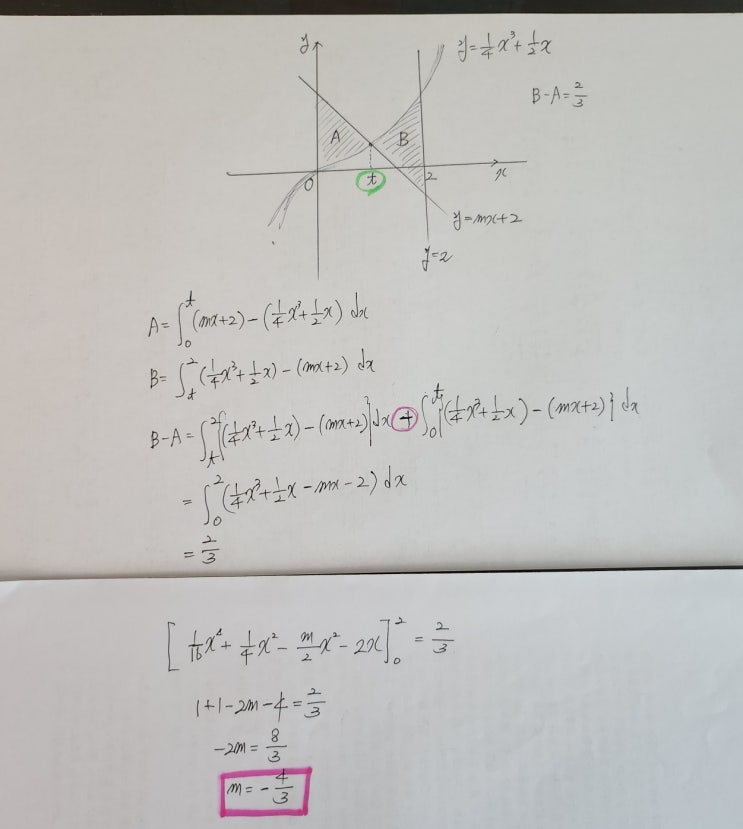 y
y=1/4x³+1/2x
B-A=2/3
A
B
0
t
2
x
y=mx+2
y=2
A=∫₀ᵗ(mx+2)-(1/4x³+1/2x) dx
B=∫ₜ²(1/4x³+1/2x)-(mx+2) dx
B-A=∫ₜ²{(1/4x³+1/2x)-(mx+2)}dx+∫₀ᵗ{(1/4x³+1/2x)-(mx+2)} dx
=∫₀²(1/4x³+1/2x-mx-2) dx
=2/3
[1/16x⁴+1/4x²-m/2x²-2x]₀²=2/3
1+1-2m-4=2/3
-2m=8/3
m=-4/3